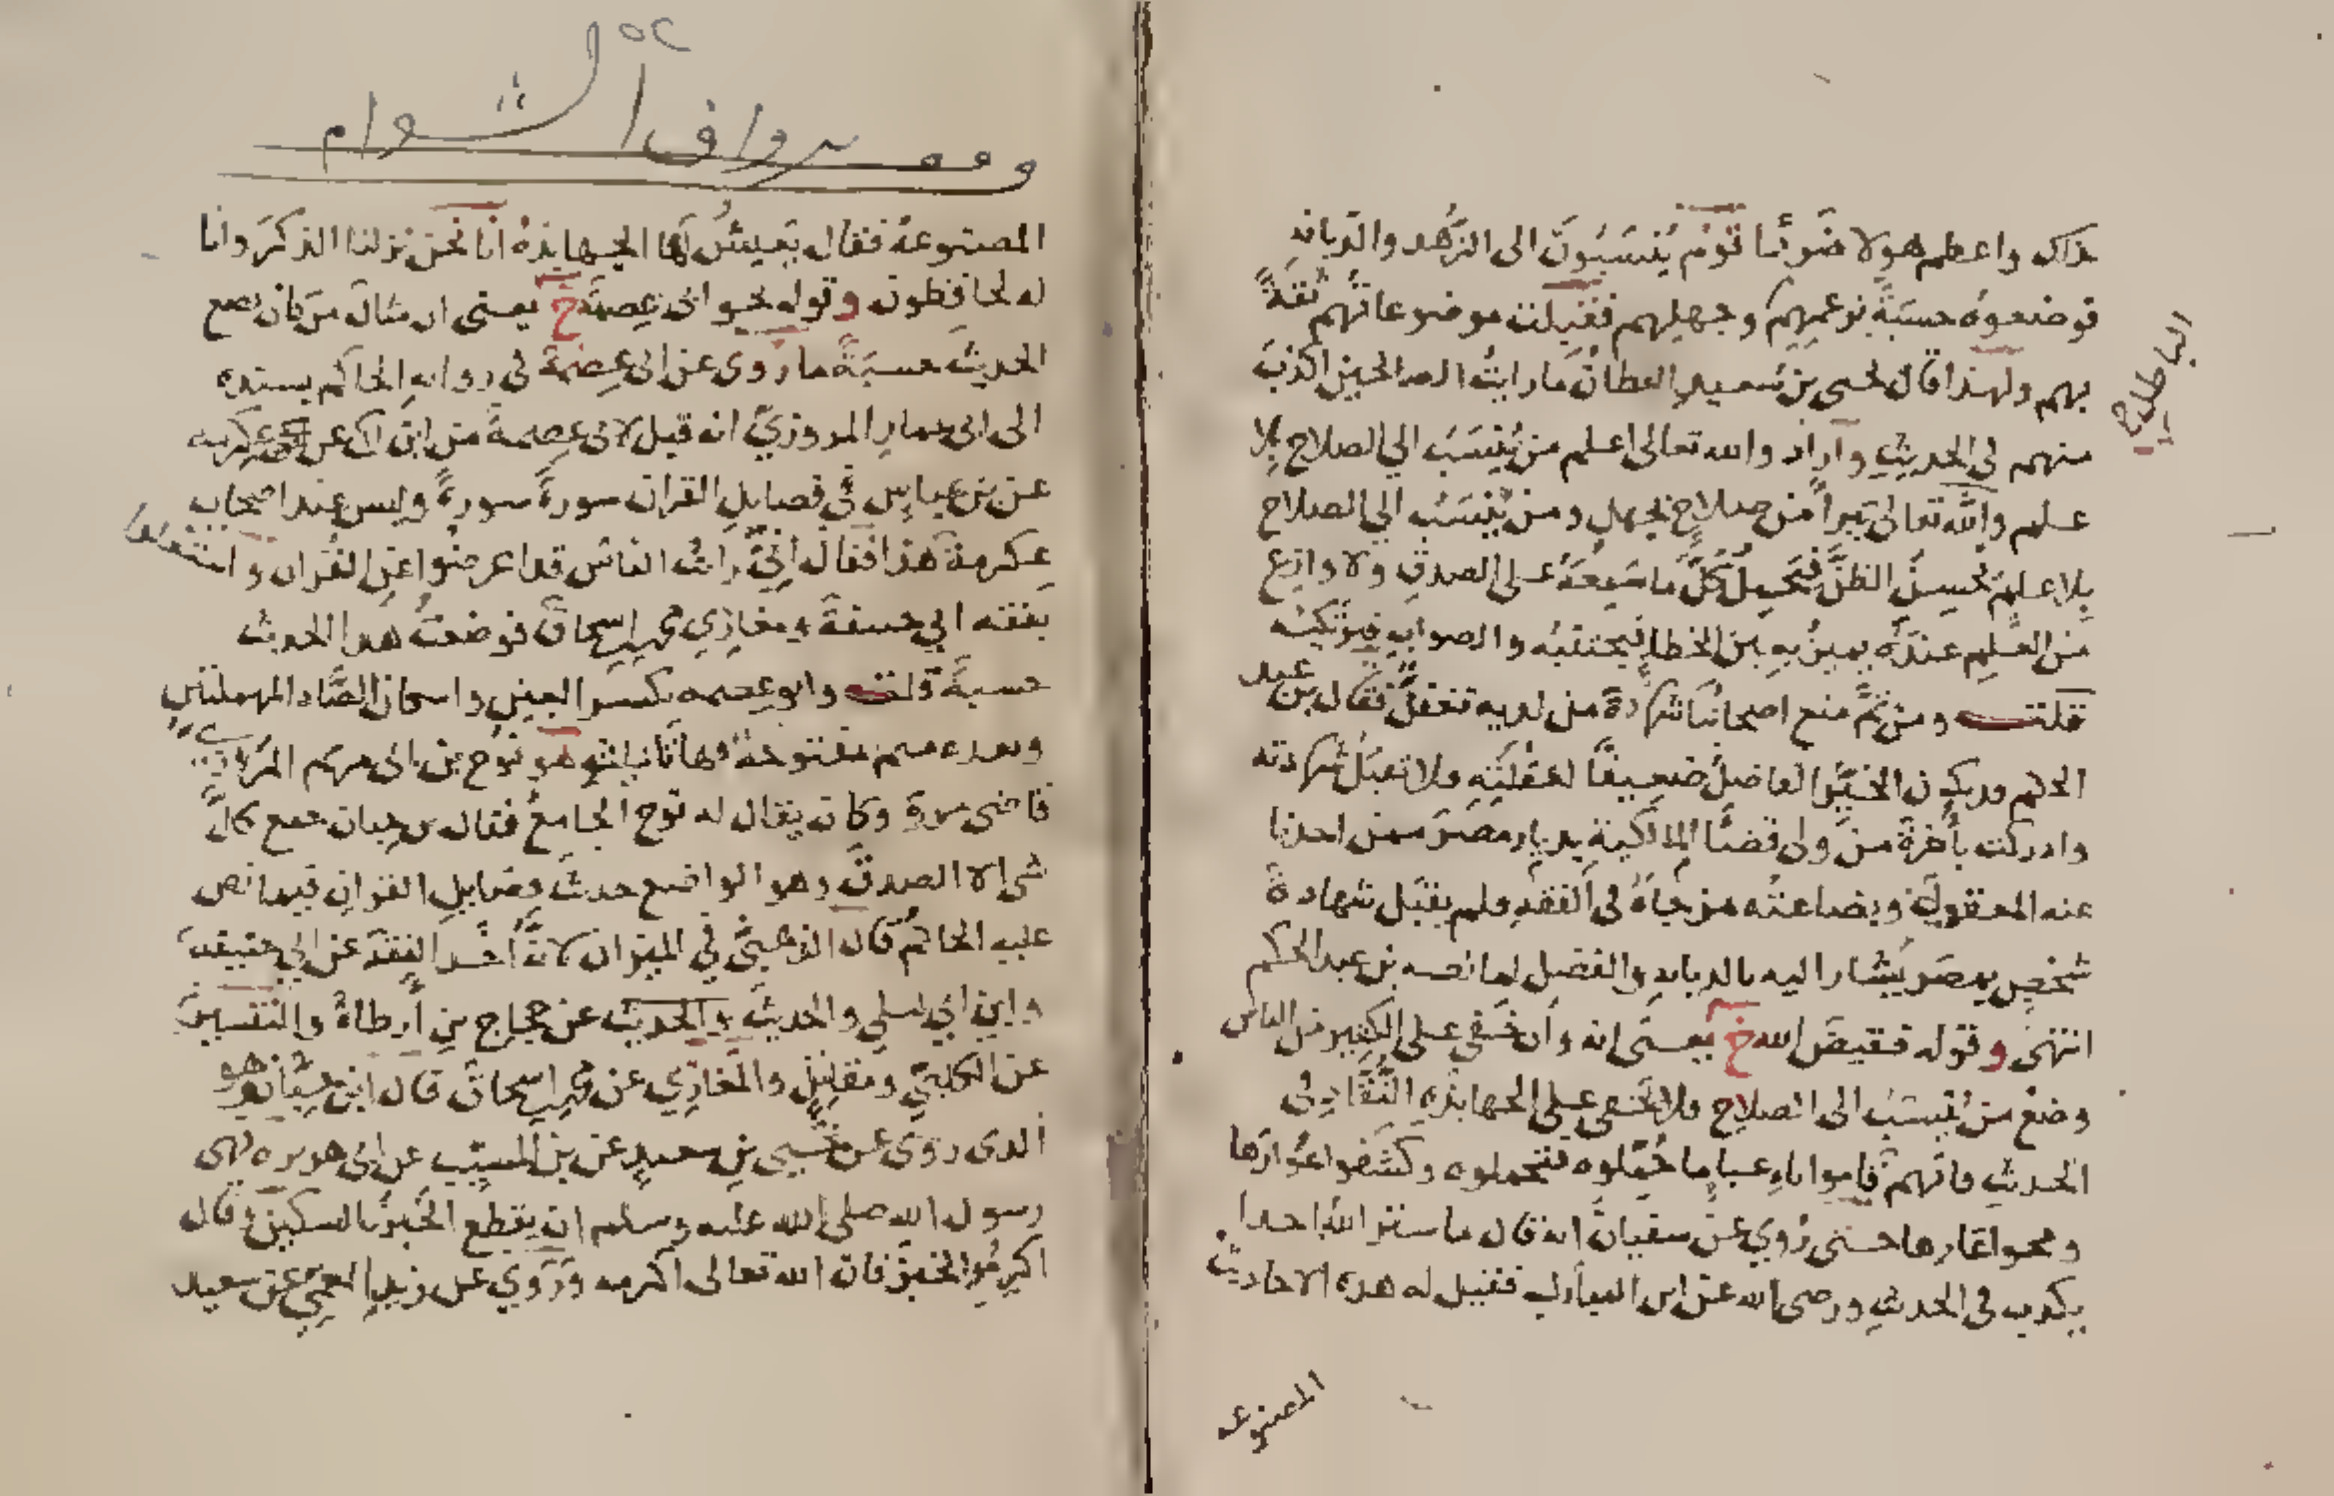 بذلك واعظم هولا ضررا قوم يُنْسَبُونَ الى الزُهد والديانه
فوضعوه حسبَةً بزعمِهِم وجهلِهم فقبِلت موضوعاتُهم ثقةً
بهم ولهذا قال يحيى بن سَعيدٍ القطان ما رايتُ الصالحين اكذبَ
منهم في الحديثِ واراد والله تعالى اعلم من يُنسَبُ الي الصلاح بِلا
علم والله تعالى تبرأ من صلاحٍ بجهلٍ ومن يُنسَبُ الي الصلاح
بلا علمٍ يُحسِنُ الظنَّ فيَحمِلُ كلَّ ما سَمِعَهُ على الصدقِ ولا وازع
من العلمِ عندَهُ يميزُ بهِ بين الخطا فيجتنبُه والصوابِ فيرتكبُه
قلت ومن ثمَّ منع اصحابُنا شهادةَ من لديه تغفلٌ فقال بن عبد
الحكم وديكون الخيِّرُ الفاضلُ ضعيفًا لغفلَتِهِ ولا تقبَلُ شهادته
وادركت بأخرةٍ منَ ولى قضا المالكيةِ بديارِ مصرَ ممن احدنا
عنه المعقولَ وبضاعتُه مزجاةٌ في الفقهِ ولم يقبَل شهادةَ
شخصٍ بمصرَ يُشار اليه بالديانه والفضل لما نصه بن عبد الحكم
انتهى وقوله فقيضَ الله خ يعنى انه وأن خَفِي على الكثير من الناس
وضعُ من يُنسَبُ الى الصلاحِ فلا يَخفى على الجهابذهِ النُقّادِ في
الحديثِ فانهم قاموا باعباءِ ما حُمِّلوه فتحملوه وكشفوا عُوارَها
ومحوا عَارها حتى رُوِيَ عن سفيانَ انه قال ما ستر اللهُ احدا
يكذب في الحديثِ وروى الله عن ابن المبارك فقيل له هذه الاحاديث
الباطلة
المصنوعة
٥٢
وقف رواق الشوام
المصنوعهُ فقال يَعيشُ لها الجهابذهُ انا نحن نزلنا الذكرَ وانا
له لحافظون وقوله نحو ابى عِصمَة خ يعنى ان مثالَ من كان يضع
الحديثَ حسبَةً ما رُوى عن ابى عِصمةَ في روايهِ الحاكم بسنده
الى ابى عمارٍ المروزيِّ انه قيل لابى عِصمةَ من اين لك عن عكرمه
عن بن عباسٍ في فضايلِ القرانِ سورةً سورةً وليس عند اصحاب
عِكرمةَ هذا فقال اِنّي رايتُ الناسَ قد اعرضُوا عن القُران واشتغلوا
بفقه ابي حنيفةَ ومغازِي محمد بن اسحاقَ فوضعتُ هذا الحديث
حسبةً قلت وابو عِصمه بكسرِ العينِ واسكان الصَّاد المهملتينِ
وبعده ميم مفتوحة فهاتأنيث هو نوح بن ابى مريم المَرْوزي
قاضي مروَ وكان يقال له نوح الجامعُ فقال بن حِبان جمع كلَّ
شي الا الصدقَ وهو الواضع حديث فضايلِ القرانِ فيما نص
عليه الحاكمُ قال الذهبيُّ في الميزان لانَّه أخَذ الفقهَ عن ابي حنيفه
وابن ابي ليلى والحديثَ والحديث عن حجاج بنِ أرطاةَ والتفسيرَ
عن الكلبيِّ ومقاتلٍ والمغازِي عن محمد بن اسحاقَ قال ابن حبَّان وهو
الذى روى عن يحيى بنِ سعيدٍ عن بن المسيِّبِ عن ابى هريره نهى
رسول الله صلى الله عليه وسلم ان يقطع الخبزُ بالسكين وقال
اكرِمُوا الخبزَ فان الله تعالى اكرمه ورَوَي عن زيدٍ العَمِّيِّ عن سعيد